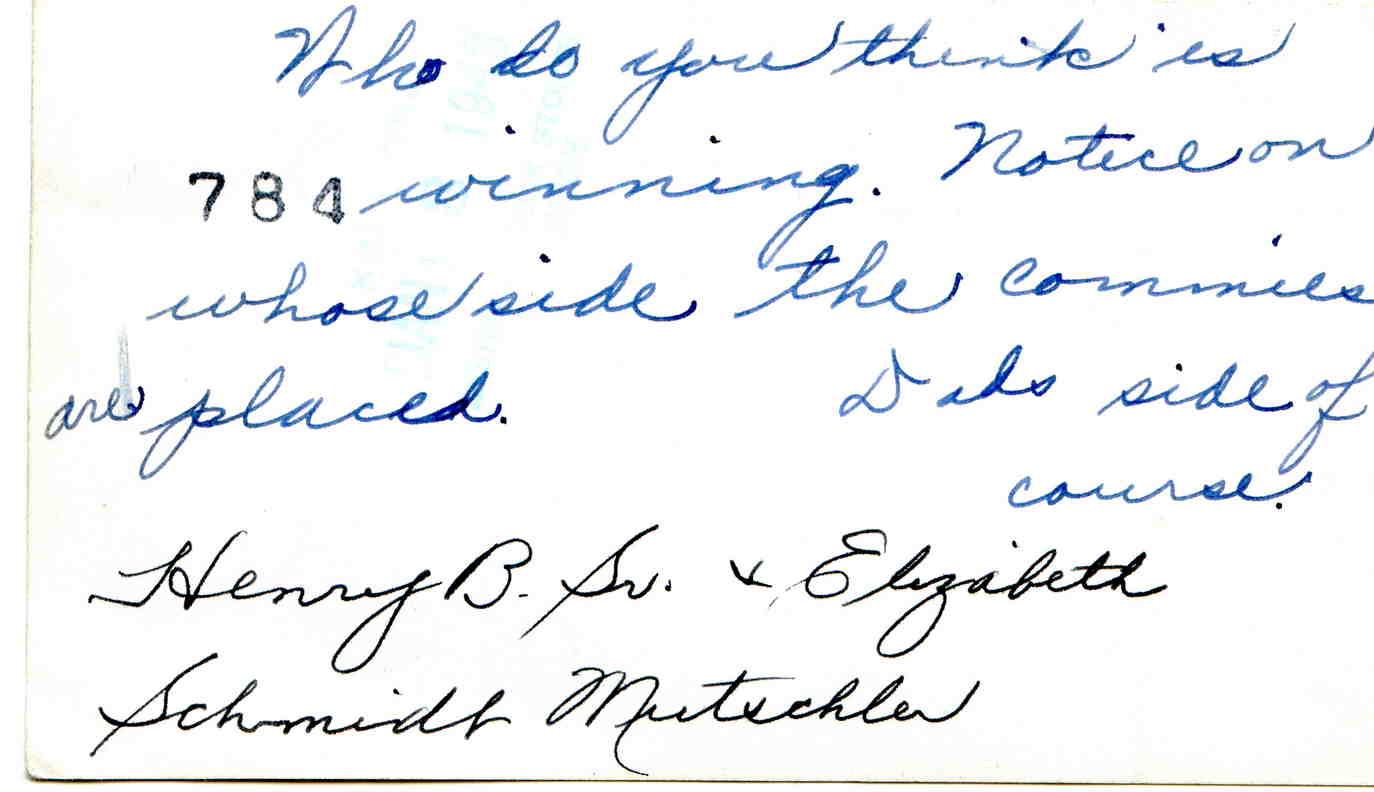 Who do you think is
784 winning. Notice on
whose side the commies
are placed. Dads side of
course.
Henry B. Sr. & Elizabeth
Schmidt Mutschler